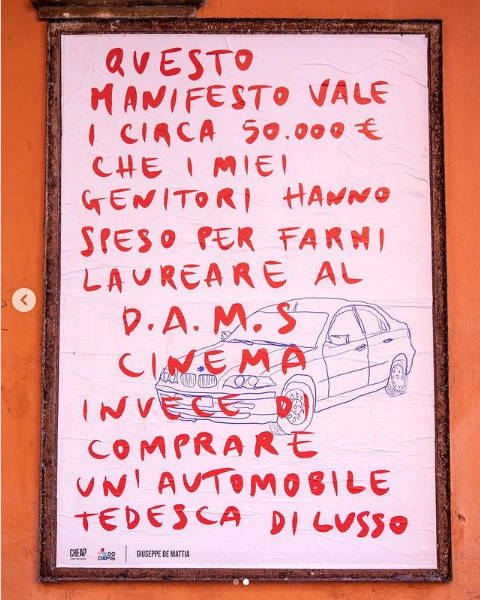 QUESTO
MANIFESTO VALE
I CIRCA 50.000 €
CHE I MIEI
GENITORI HANNO
SPESO PER FARMI
LAUREARE AL
D.A.M.S
CINEMA
INVECE DI
COMPRARE
UN'AUTOMOBILE
TEDESCA DI LUSSO
CHEAP
50
DAMS
GIUSEPPE DE MATTIA